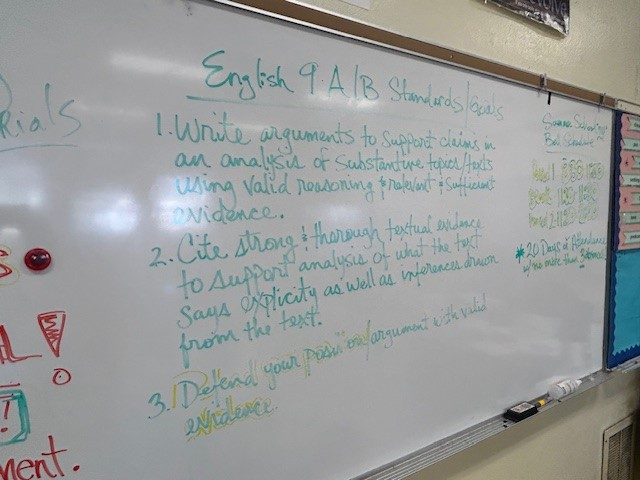 English 9 A/B Standards/Goals
1. Write arguments to support claims in
an analysis of substantive topics/texts
using valid reasoning & relevant & sufficient
evidence.
2. Cite strong & thorough textual evidence
to support analysis of what the text
says explicity as well as inferences drawn
from the text.
3. Defend your position/argument with valid
evidence.
rials
S
L!
!
ment.
Bell Schedule
*20 Days of Attendance
w/ no more than